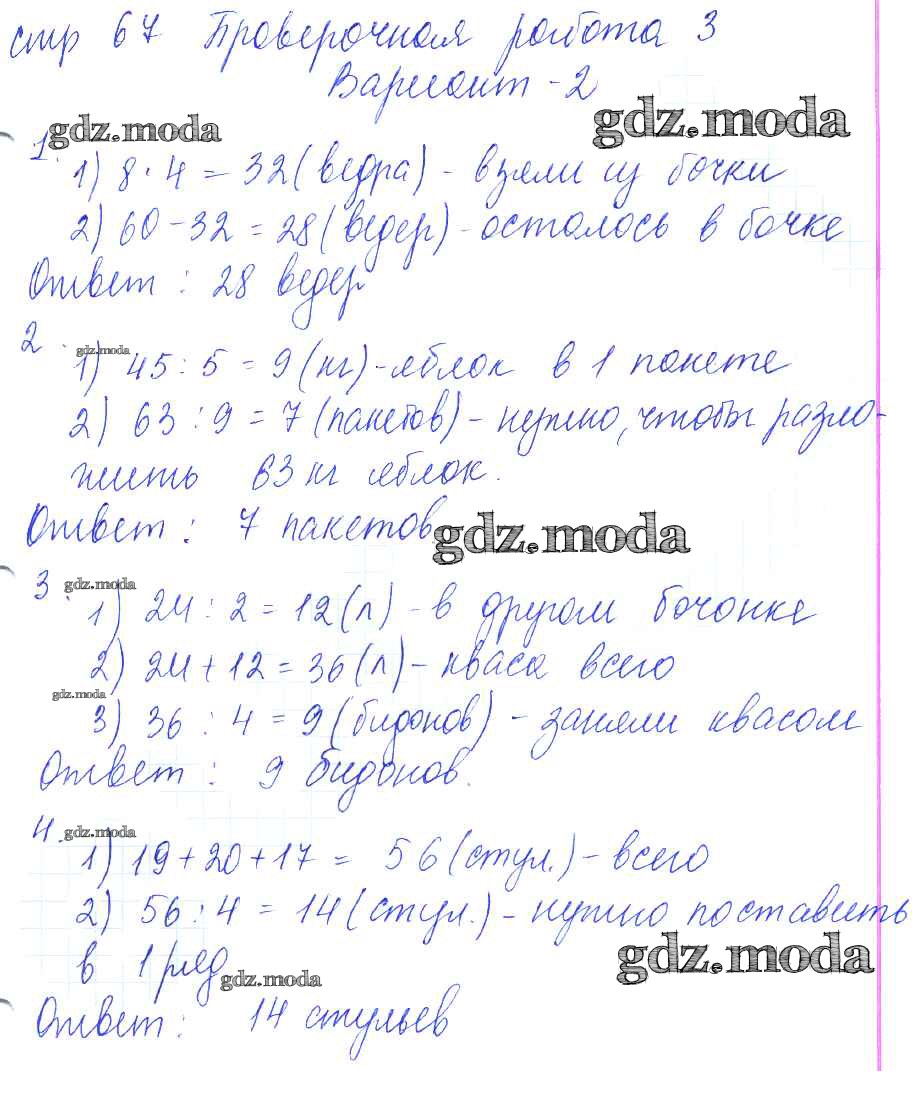 стр 67 Проверочная работа 3
Вариант - 2
gdz.moda gdz.moda
1. 1) 8 · 4 = 32 (ведра) - взяли из бочки
2) 60 - 32 = 28 (ведер) - осталось в бочке
Ответ : 28 ведер
gdz.moda
2. 1) 45 : 5 = 9 (кг) - яблок в 1 пакете
2) 63 : 9 = 7 (пакетов) - нужно, чтобы разло-
жить 63 кг яблок.
Ответ : 7 пакетов gdz.moda
gdz.moda
3. 1) 24 : 2 = 12 (л) - в другом бочонке
2) 24 + 12 = 36 (л) - кваса всего
gdz.moda
3) 36 : 4 = 9 (бидонов) - заняли квасом
Ответ : 9 бидонов.
gdz.moda
4. 1) 19 + 20 + 17 = 56 (стул.) - всего
2) 56 : 4 = 14 (стул.) - нужно поставить
в 1 ряд gdz.moda gdz.moda
Ответ : 14 стульев